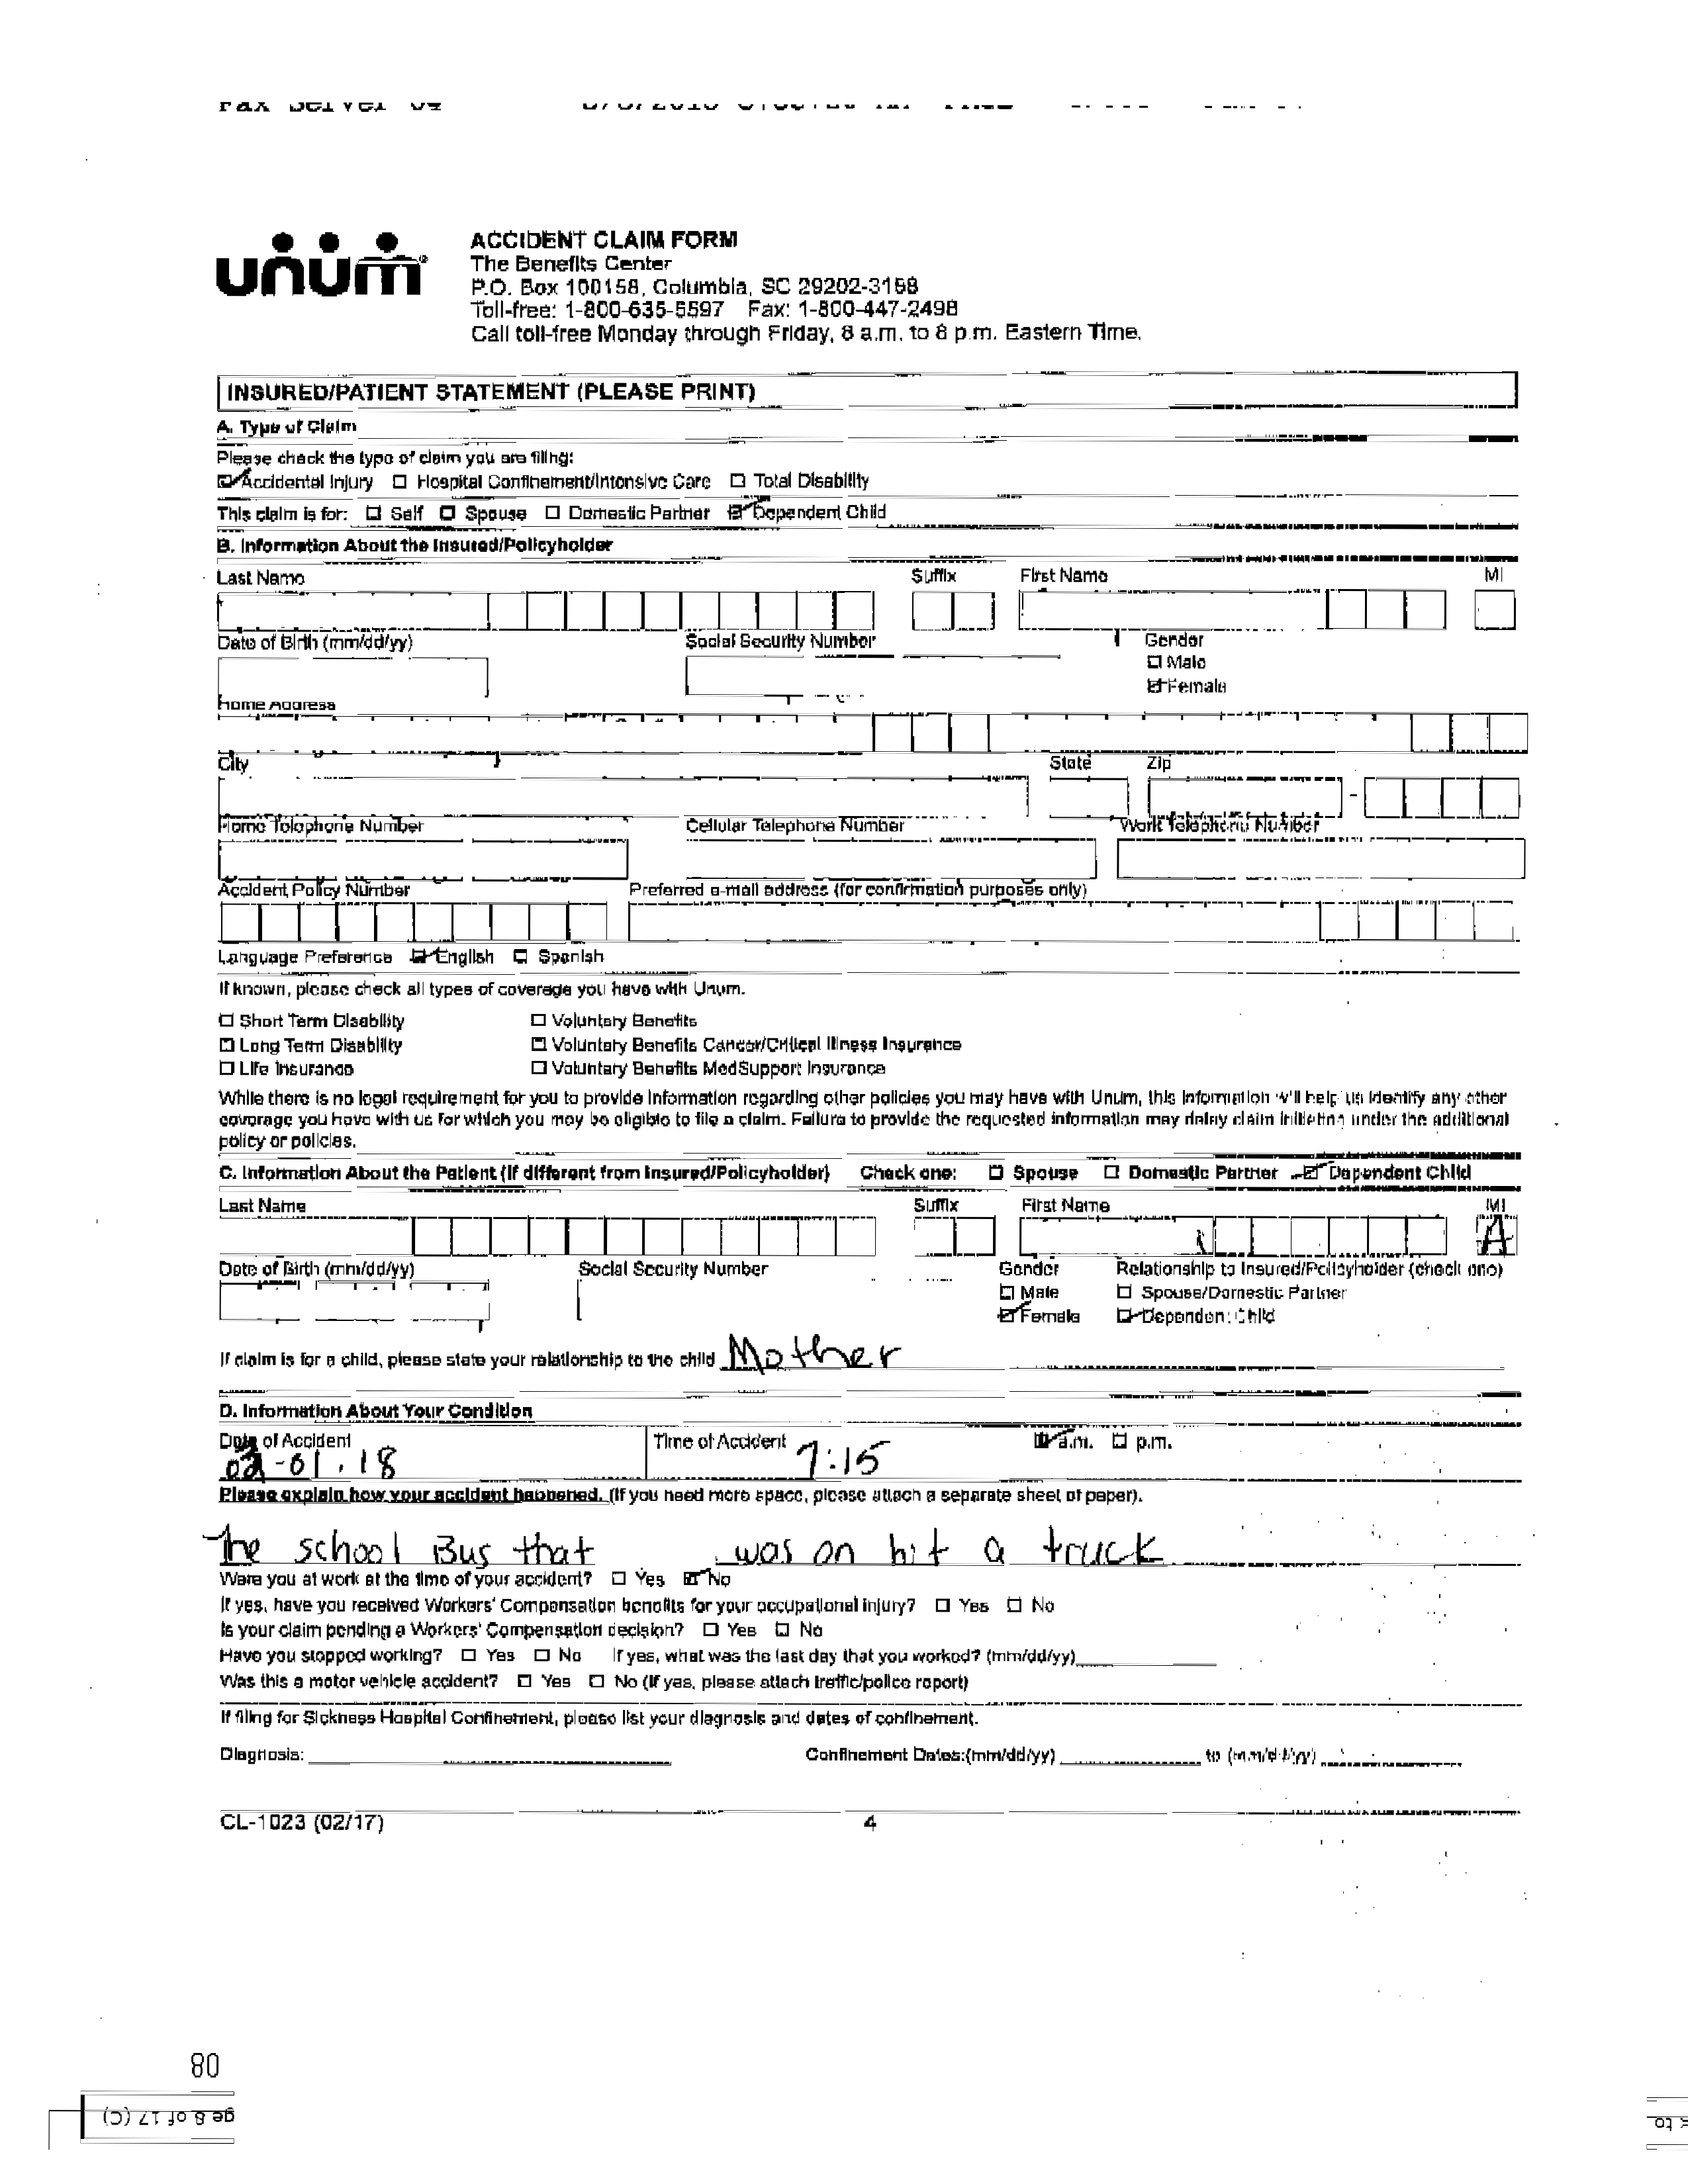 Fax Server 04
unum
ACCIDENT CLAIM FORM
The Benefits Center
P.O. Box 100158, Columbia, SC 29202-3158
Toll-free: 1-800-635-5597 Fax: 1-800-447-2498
Call toll-free Monday through Friday, 8 a.m. to 8 p.m. Eastern Time.
INSURED/PATIENT STATEMENT (PLEASE PRINT)
A. Type of Claim
Please check the type of claim you are filing:
Accidental Injury Hospital Confinement/Intensive Care Total Disability
This claim is for: Self Spouse Domestic Partner Dependent Child
B. Information About the Insured/Policyholder
Last Name Suffix First Name MI
Date of Birth (mm/dd/yy) Social Security Number Gender
Male
Female
Home Address
City State Zip
Home Telephone Number Cellular Telephone Number Work Telephone Number
Accident Policy Number Preferred e-mail address (for confirmation purposes only)
Language Preference English Spanish
If known, please check all types of coverage you have with Unum.
Short Term Disability Voluntary Benefits
Long Term Disability Voluntary Benefits Cancer/Critical Illness Insurance
Life Insurance Voluntary Benefits MedSupport Insurance
While there is no legal requirement for you to provide information regarding other policies you may have with Unum, this information will help us identify any other
coverage you have with us for which you may be eligible to file a claim. Failure to provide the requested information may delay claim initiation under the additional
policy or policies.
C. Information About the Patient (If different from Insured/Policyholder) Check one: Spouse Domestic Partner Dependent Child
Last Name Suffix First Name MI
A
Date of Birth (mm/dd/yy) Social Security Number Gender Relationship to Insured/Policyholder (check one)
Male Spouse/Domestic Partner
Female Dependent Child
If claim is for a child, please state your relationship to the child Mother
D. Information About Your Condition
Date of Accident Time of Accident a.m. p.m.
02-01.18 7:15
Please explain how your accident happened. (If you need more space, please attach a separate sheet of paper).
The school Bus that was on hit a truck
Were you at work at the time of your accident? Yes No
If yes, have you received Workers' Compensation benefits for your occupational injury? Yes No
Is your claim pending a Workers' Compensation decision? Yes No
Have you stopped working? Yes No If yes, what was the last day that you worked? (mm/dd/yy)
Was this a motor vehicle accident? Yes No (If yes, please attach traffic/police report)
If filing for Sickness Hospital Confinement, please list your diagnosis and dates of confinement.
Diagnosis: Confinement Dates:(mm/dd/yy) to (mm/dd/yy)
CL-1023 (02/17) 4
80
ge 8 of 17 (C)